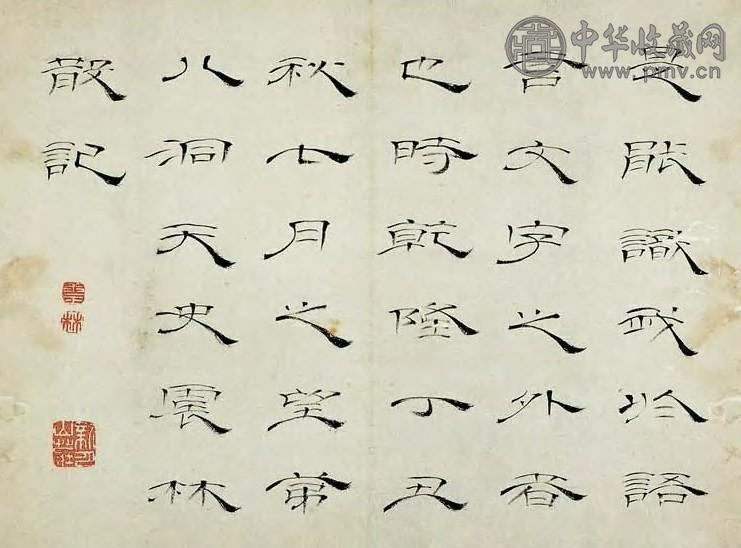 中华收藏网
www.pmv.cn
是能識我於語
言文字之外者
也時乾隆丁丑
秋七月之望第
八洞天史震林
散記